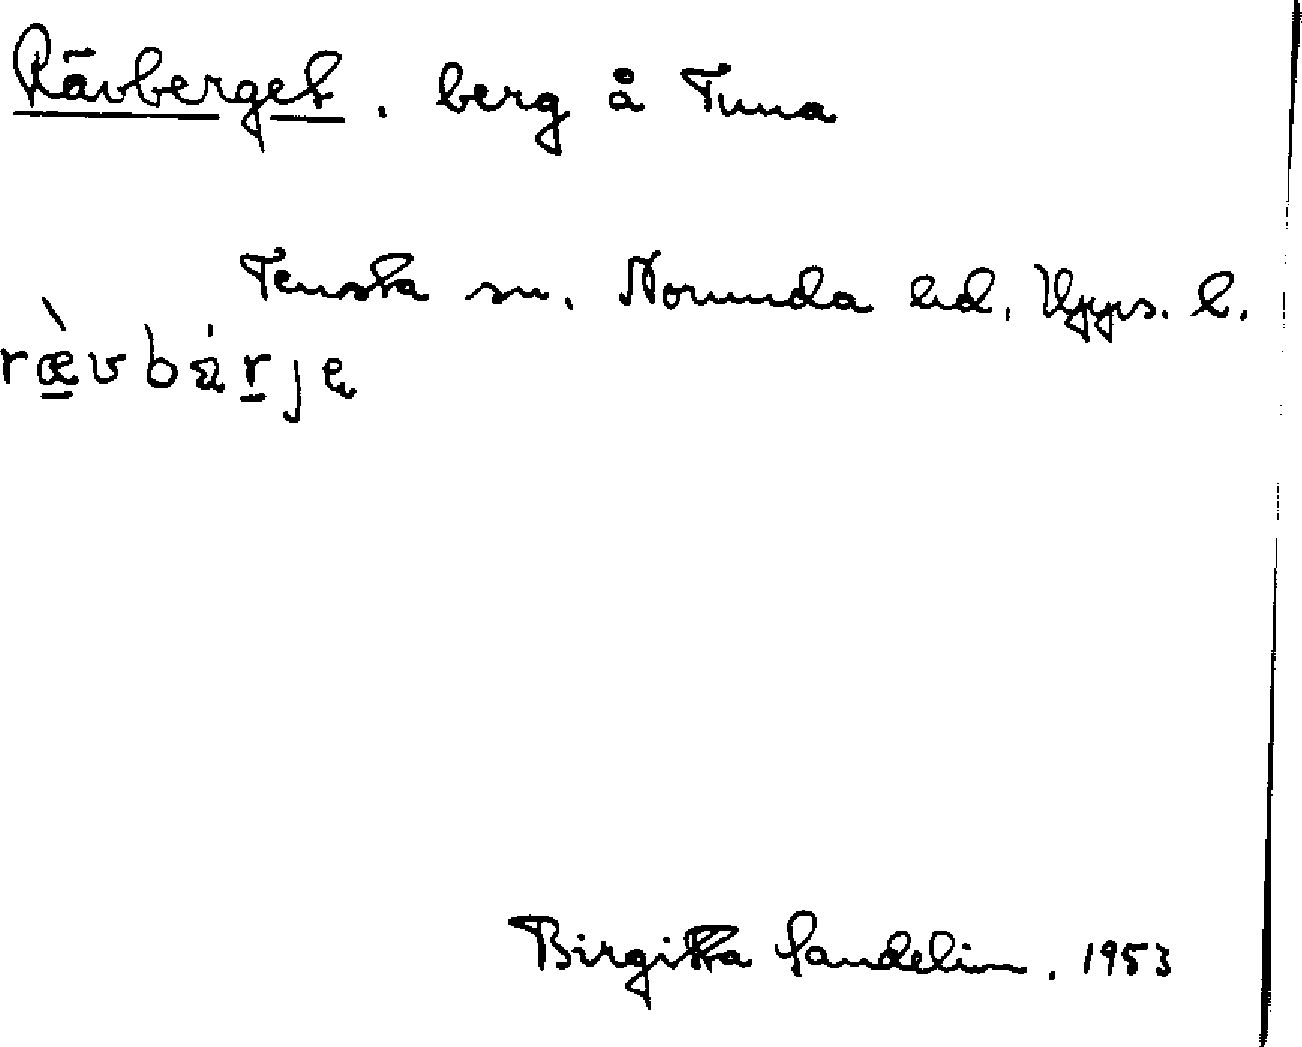 Rävberget, berg å Tuna
Tensta sn. Norunda hd. Upps. l.
ræ̀vbárję
Birgitta Sandelin. 1953